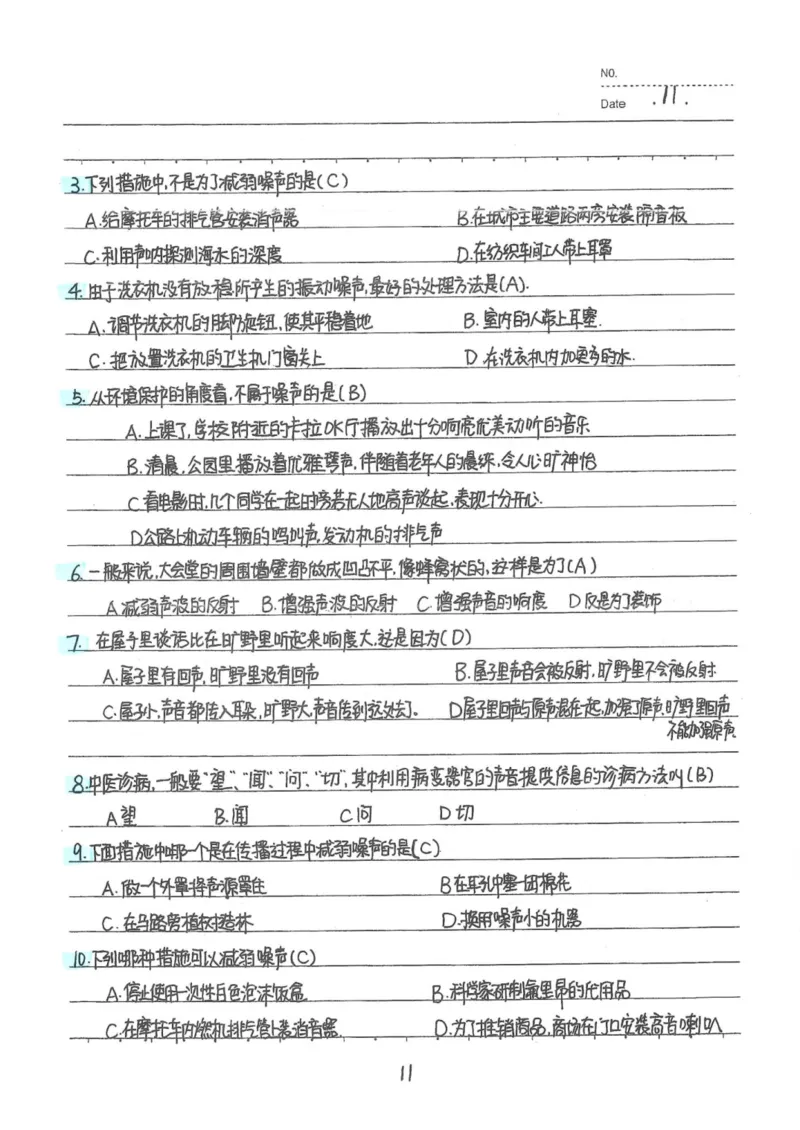 NO.
Date . 11 .
3.下列措施中,不是为了减弱噪声的是(C)
A.给摩托车的排气管安装消声器 B.在城市主要道路两旁安装隔音板
C.利用声呐探测海水的深度 D.在纺织车间工人带上耳罩
4.由于洗衣机没有放稳所产生的振动噪声,最好的处理方法是(A).
A.调节洗衣机的脚旋钮,使其平稳着地 B.室内的人带上耳塞.
C.把放置洗衣机的卫生机门窗关上 D.在洗衣机内加更多的水.
5.从环境保护的角度看,不属于噪声的是(B)
A.上课了,学校附近的卡拉OK厅播放出十分响亮优美动听的音乐
B.清晨,公园里播放着优雅琴声,伴随着老年人的晨练,令人心旷神怡
C看电影时,几个同学在一起旁若无人地高声谈起,表现十分开心.
D公路上机动车辆的鸣叫声,发动机的排气声
6.一般来说,大会堂的周围墙壁都做成凹凸不平,像蜂窝状的,这样是为了(A)
A减弱声波的反射 B.增强声波的反射 C.增强声音的响度 D仅是为了装饰
7.在屋子里谈话比在旷野里听起来响度大,这是因为(D)
A.屋子里有回声,旷野里没有回声 B.屋子里声音会被反射,旷野里不会被反射
C.屋子小,声音都传入耳朵,旷野大,声音传到远处去了。 D屋子里回声与原声混在一起,加强了原声,旷野里回声
不能加强原声.
8.中医诊病,一般要“望”、“闻”、“问”、“切”,其中利用病变器官的声音提供信息的诊病方法叫(B)
A望 B.闻 C问 D切
9.下面措施中哪一个是在传播过程中减弱噪声的是(C)
A.做一个外罩将声源罩住 B在耳孔中塞一团棉花
C.在马路旁植树造林 D.换用噪声小的机器
10.下列哪种措施可以减弱噪声(C)
A.停止使用一次性白色泡沫饭盒 B.科学家研制氟里昂的代用品
C.在摩托车内燃机排气管上装消音器. D.为了推销商品,商场在门口安装高音喇叭
11